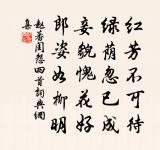 红芳不可待
绿荫忽已成
妾貌愧花好
郎姿如柳明
赵蕃闺怨四首词典网
集